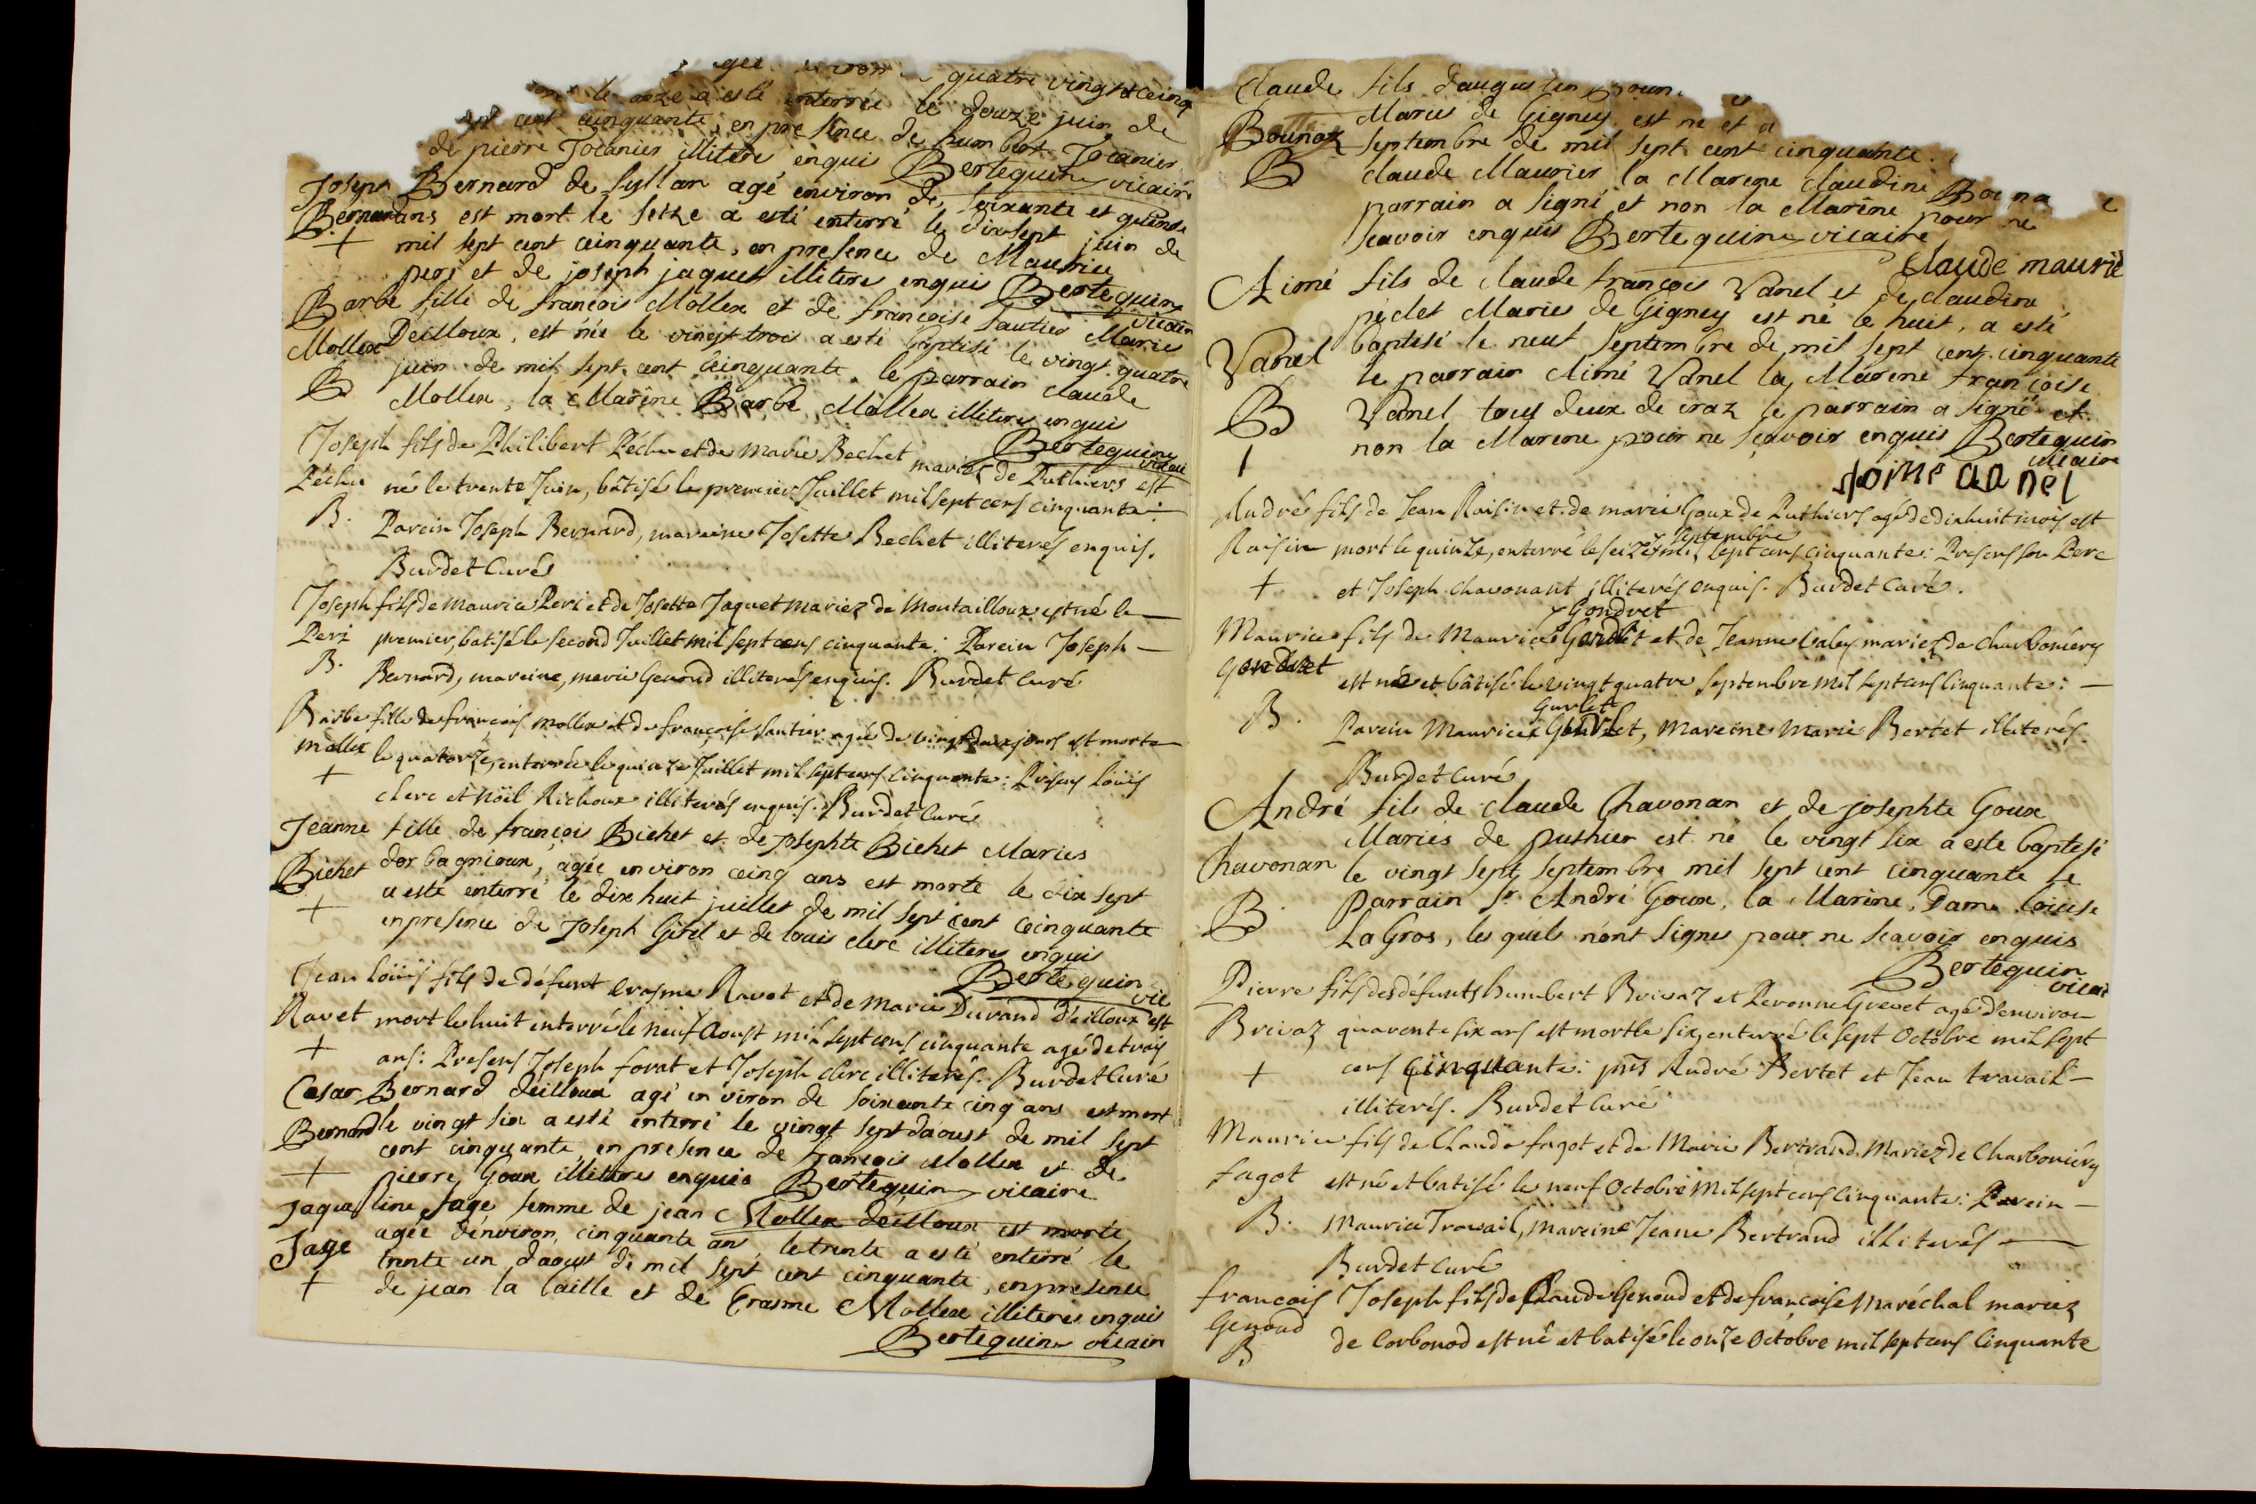 quatre vingt et ceinq
le onze a esté enterrée le douze juin de
sept cent ceinquante, en presence de humbert Jocanier
de pierre Jocanier illitere enquis Bertequin vicaire
Joseph Bernard de syllan agé environ de soixante et quinse
Bernard ans est mort le seize a esté enterré le dixsept juin de
+ mil sept cent ceinquante, en presence de Maurice
peri et de joseph jaquet illiteres enquis Bertequin
vicair
Barbe fille de françois Mollex et de francoise sautier Maries
Mollex Deilloux, est née le vingt trois a esté baptisé le vingt quatre
B juin de mil sept cent ceinquante le parrain claude
Mollex, la Marine Barbe Mollex illiteres enquis
Bertequin vicai
Joseph fils de Philibert Péchu et de Marie Bechet mariez de Puthiers est
Péchu né le trente Juin, bâtisé le premier Juillet mil sept cens cinquante:
B. Parein Joseph Bernard, mareine Josette Bechet illiterés enquis.
Burdet Curé
Joseph fils de Maurice Peri et de Josette Jaquet mariez de Montailloux est né le
Peri premier, batisé le second Juillet mil sept cens cinquante: Parein Joseph
B. Bernard, mareine, marie Genoud illiterés enquis. Burdet Curé
Barbe fille de françois Mollex et de françoise Sautier agée de vingt deux jours est morte
Mollex le quatorze, enterrée le quinze Juillet mil sept cens cinquante: Présens Loüis
+ clerc et Nöel Richoux illiterés enquis. Burdet Curé
Jeanne fille de françois Bichet et de Josephte Bichet Maries
Bichet dorbagnioux, agée environ ceinq ans est morte le dix sept
+ a esté enterré le dix huit juillet de mil sept cent ceinquante
en presence de Joseph Girel et de louis clerc illiteres enquis
Bertequin vic
Jean Loüis fils de défunt Erasme Ravet et de Marie Durand d'Eilloux est
Ravet mort le huit enterré le neuf Aoust mil sept cens cinquante agé de trois
+ ans: Presens Joseph forat et Joseph clerc illiterés. Burdet Curé
Cesar Bernard deilloux agé environ de soixante cinq ans est mort
Bernard le vingt six a esté enterré le vingt sept daoust de mil sept
cent cinquante en presence de françois Mollex et de
+ pierre Goux illiteres enquis Bertequin vicaire
Jaqueline Sage femme de jean Mollex deilloux est morte
Sage agée d'environ cinquante ans, le trente a esté enterré le
+ trente un daoust de mil sept cent cinquante, en presence
de jean la taille et de Erasme Mollex illiteres enquis
Bertequin vicair
Claude fils daugustin
Maries de Gigney est né et a
Bounaz septembre de mil sept cent cinquante
B claude Maurier la Marene claudine
parrain a signé et non la Marine pour ne
scavoir enquis Bertequin vicaire
Claude maurié
Aimé fils de claude françois Vanel et de claudine
peclet Maries de Gigney est né le huit, a esté
Vanel baptisé le neuf septembre de mil sept cent cinquante
le parrain Aimé Vanel la Marene françoise
B Vanel tous deux de craz le parrain a signé et
non la Marene pour ne scavoir enquis Bertequin
vicaire
André fils de Jean Raisin et de marie Goux de Puthiers agé de dixhuit mois est
septembre
Raisin mort le quinze, enterré le seize mil sept cens cinquante: Presens son Pere
+ et Joseph chavonant illiterés enquis. Burdet Curé.
Gondret
Maurice fils de Maurice et de Jeanne mariez de Charboniery
est né et bâtisé le vingt quatre septembre mil sept cens cinquante:
B. Parein Maurice Mareine Marie Bertet illiterés.
Burdet Curé
André fils de claude Chavonan et de josephte Goux
Maries de puthier est né le vingt six a esté baptisé
Chavonan le vingt sept septembre mil sept cent cinquante le
B Parrain Sr André Goux, la Marine, Dame Loüise
LaGros, les quels n'ont signes pour ne scavoir enquis
Bertequin
vicair
Pierre fils des défunts humbert Brivaz et Peronne Grevet agé d'environ
Brivaz quarente six ans est mort le six, enterré le sept Octobre mil sept
+ cens cinquante: pns André Bertet et Jean travail
illiterés. Burdet Curé
Maurice fils de Claude fagot et de Marie Bertrand Mariez de Charboniery
fagot est né et batisé le neuf Octobre mil sept cens cinquante: Parein
B. Maurice Travail, Mareine Jeane Bertrand illiterés
Burdet Curé
francois Joseph fils de Claude Genoud et de françoise Maréchal mariez
Genoud
B de Corbonod est né et batisé le onze Octobre mil sept cens cinquante